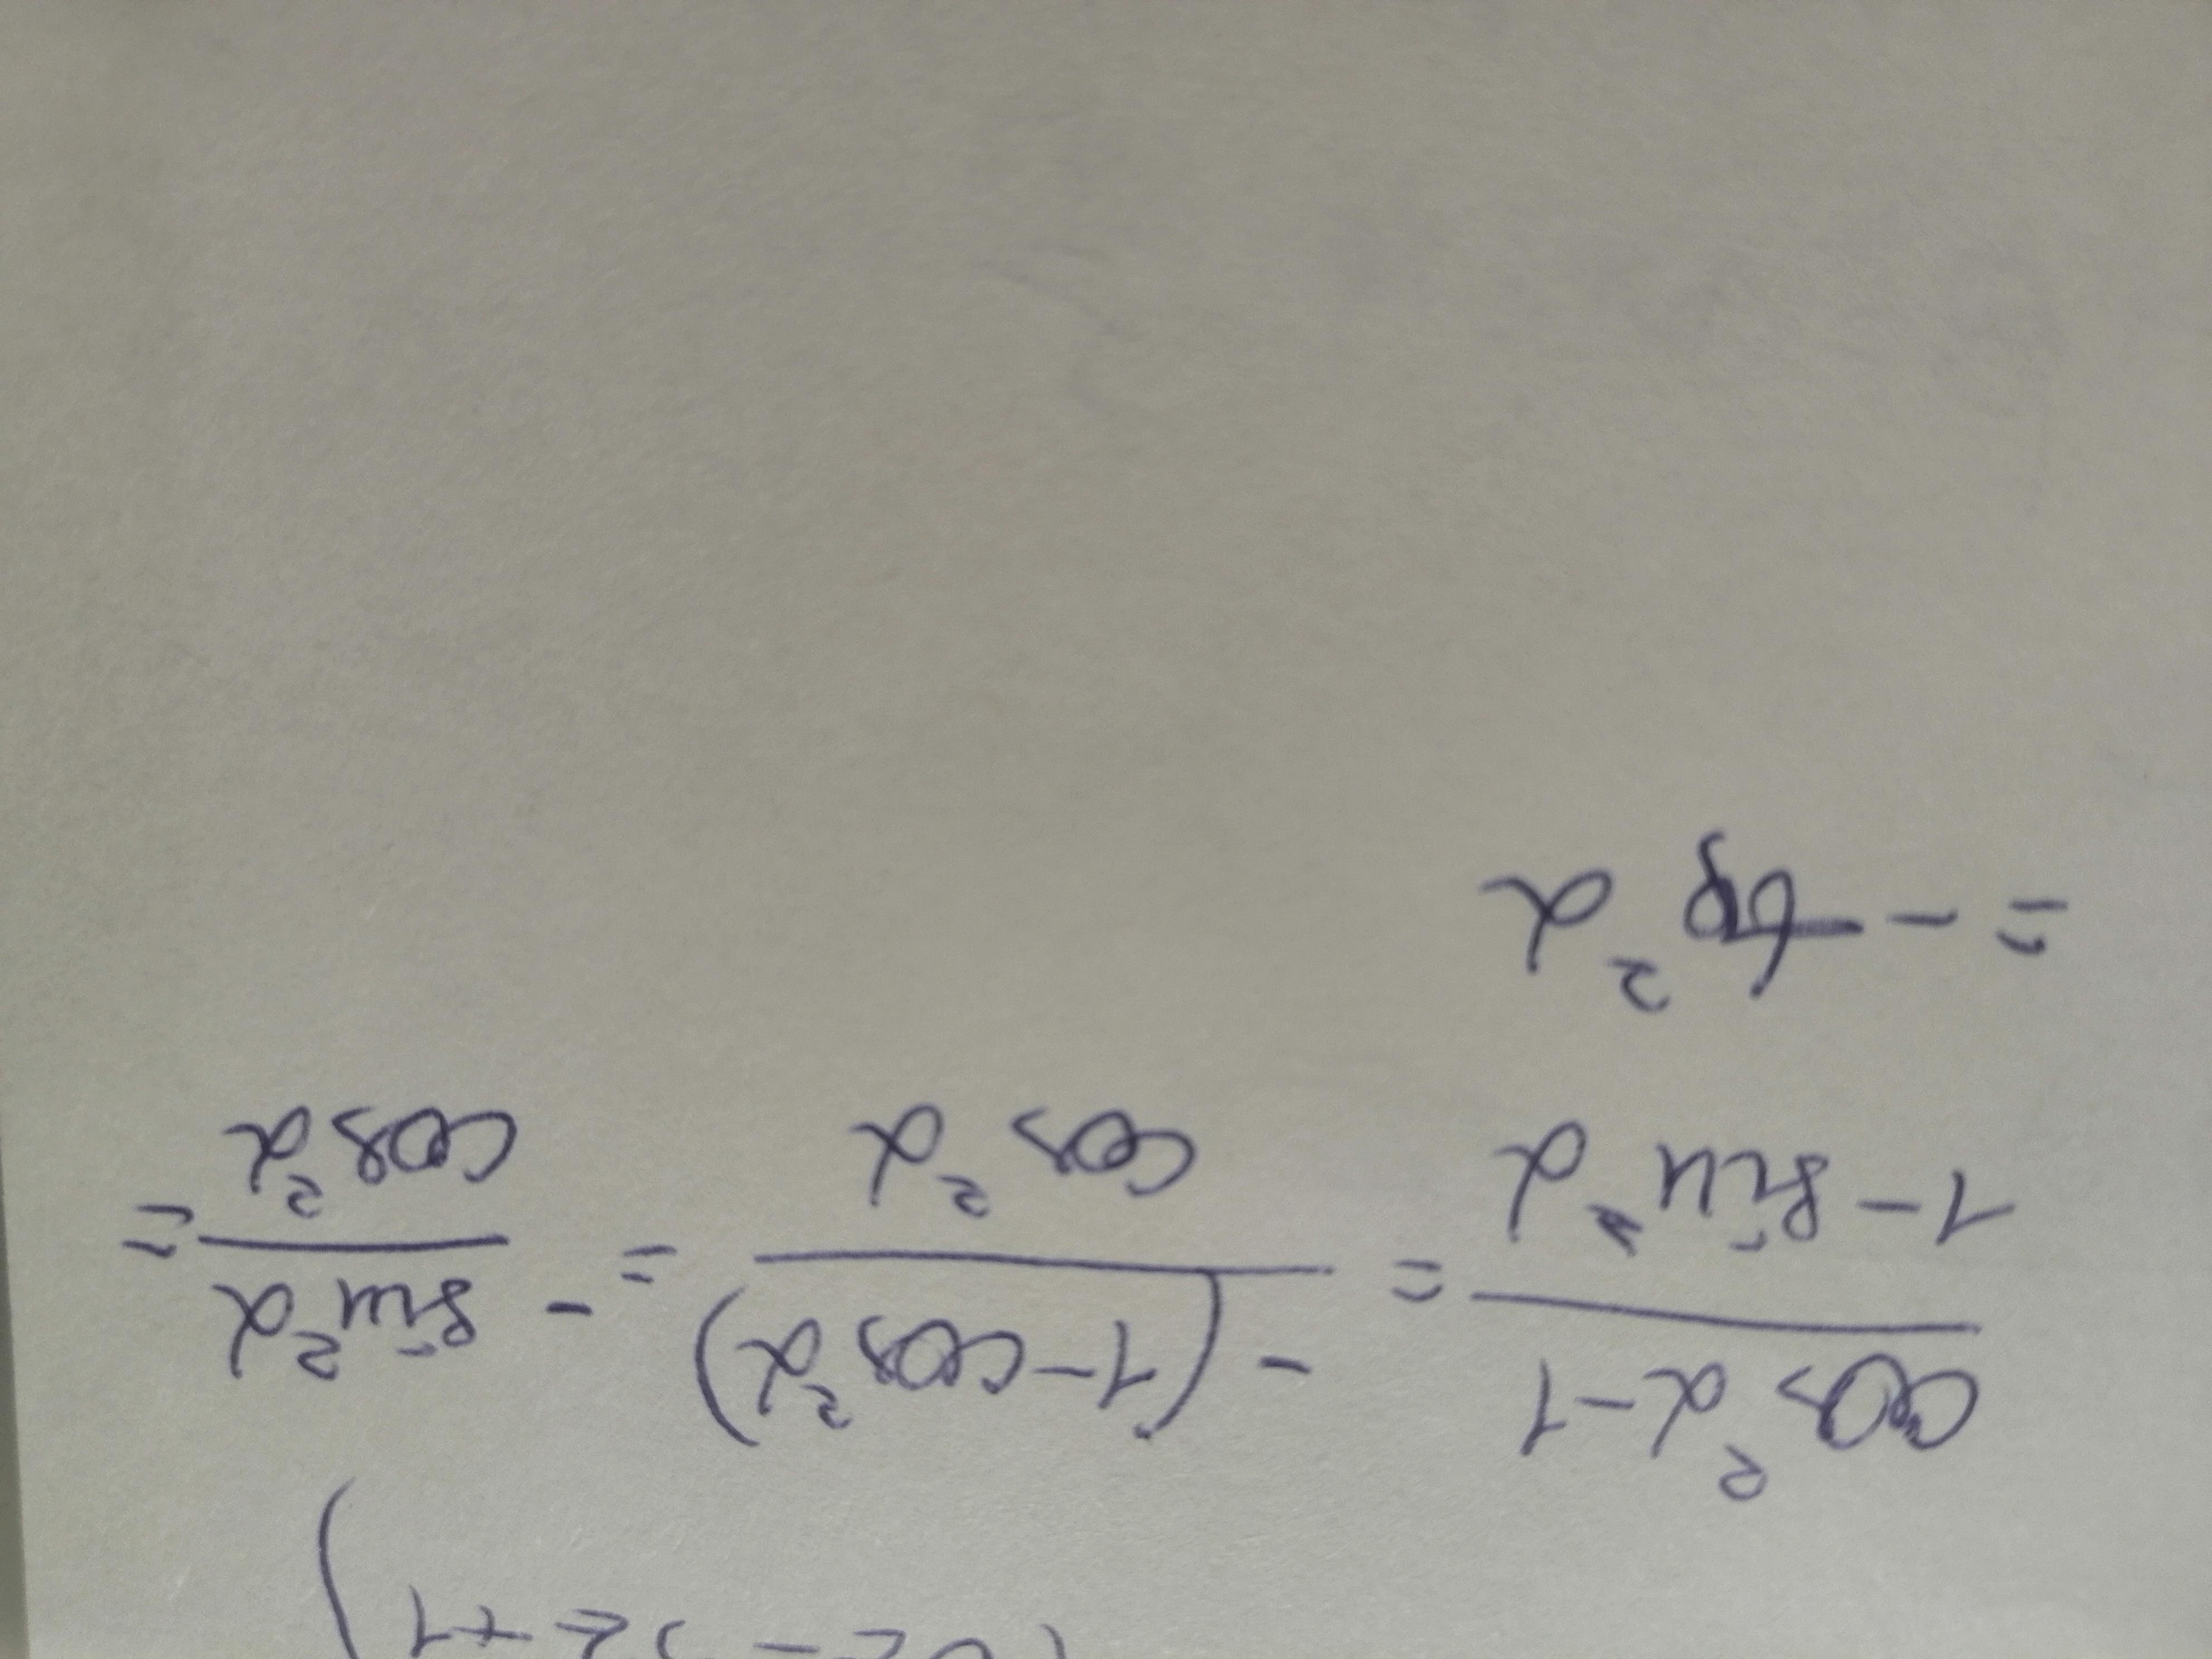 cos²α-1 / 1-sin²α = -(1-cos²α) / cos²α = - sin²α / cos²α =
= - tg²α